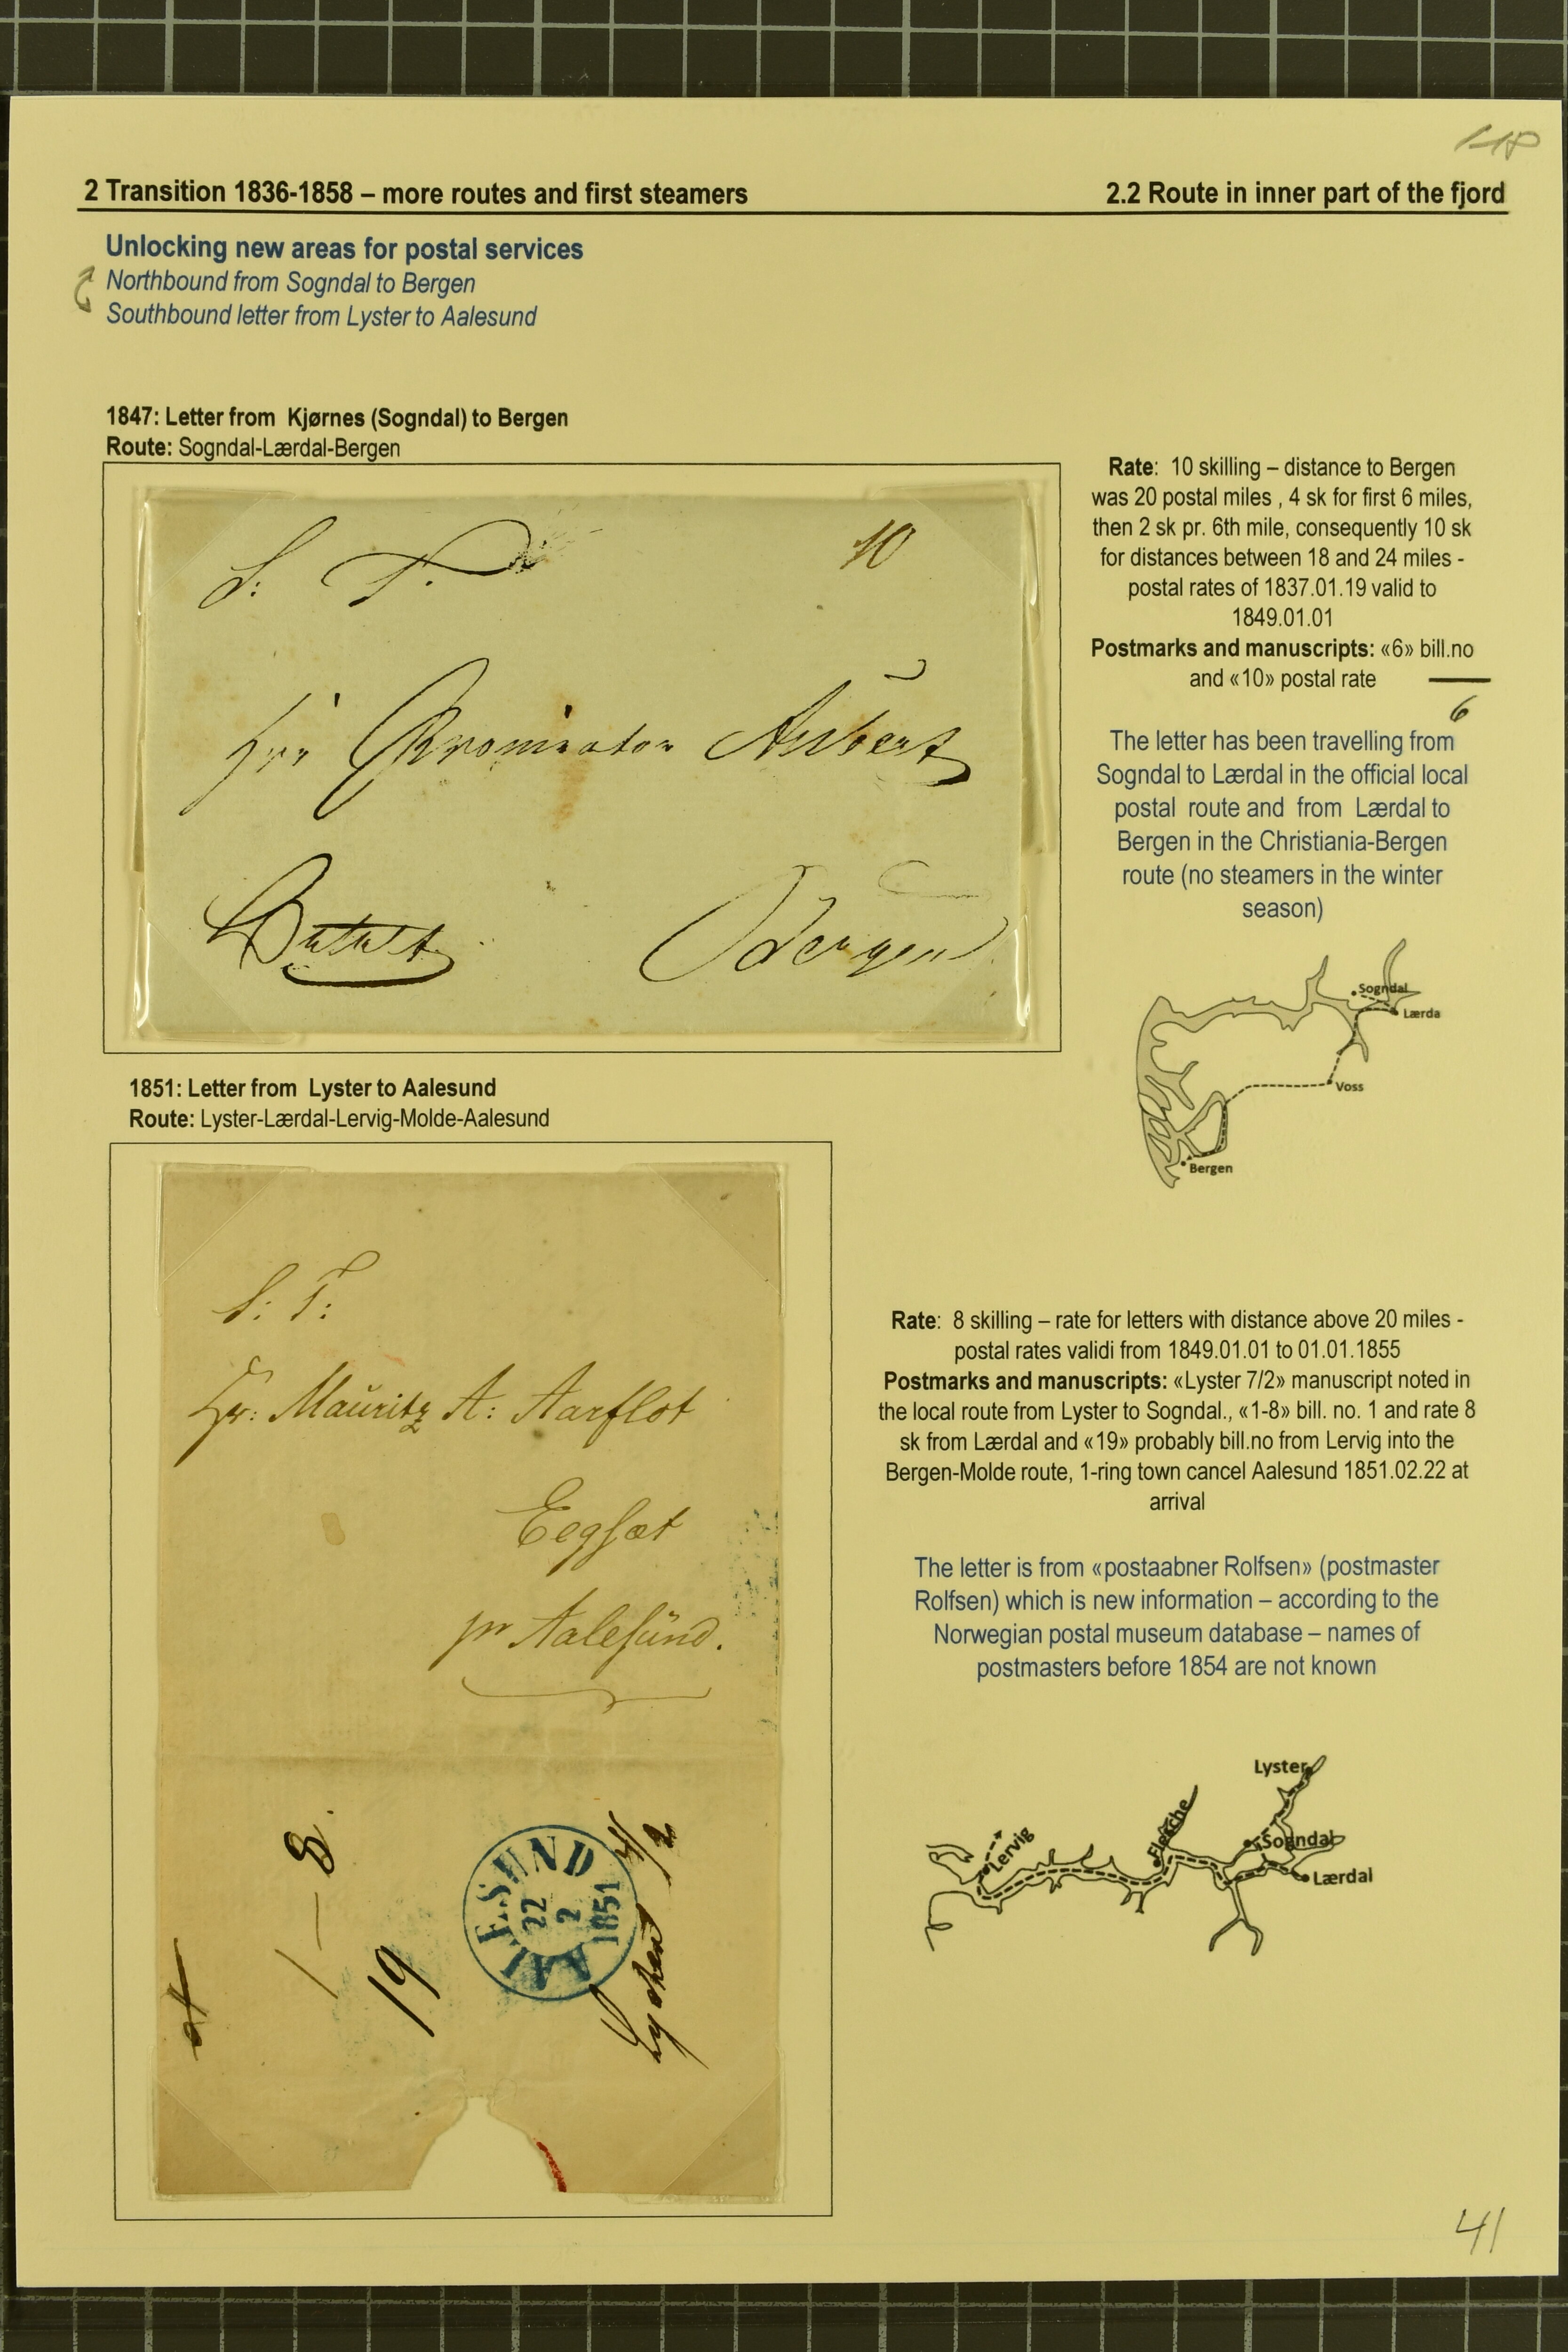 118
2 Transition 1836-1858 – more routes and first steamers 2.2 Route in inner part of the fjord
Unlocking new areas for postal services
Northbound from Sogndal to Bergen
Southbound letter from Lyster to Aalesund
1847: Letter from Kjørnes (Sogndal) to Bergen
Route: Sogndal-Lærdal-Bergen
S: T. 10
Aubert
Betalt Bergen
Rate: 10 skilling – distance to Bergen
was 20 postal miles , 4 sk for first 6 miles,
then 2 sk pr. 6th mile, consequently 10 sk
for distances between 18 and 24 miles -
postal rates of 1837.01.19 valid to
1849.01.01
Postmarks and manuscripts: «6» bill.no
and «10» postal rate
6
The letter has been travelling from
Sogndal to Lærdal in the official local
postal route and from Lærdal to
Bergen in the Christiania-Bergen
route (no steamers in the winter
season)
Sogndal
Lærda
Voss
Bergen
1851: Letter from Lyster to Aalesund
Route: Lyster-Lærdal-Lervig-Molde-Aalesund
S: T:
Hr: Mauritz A: Aarflot
Eegsæt
pr Aalesund.
1 – 8.
19
AALESUND
22
2
1851
Rate: 8 skilling – rate for letters with distance above 20 miles -
postal rates validi from 1849.01.01 to 01.01.1855
Postmarks and manuscripts: «Lyster 7/2» manuscript noted in
the local route from Lyster to Sogndal., «1-8» bill. no. 1 and rate 8
sk from Lærdal and «19» probably bill.no from Lervig into the
Bergen-Molde route, 1-ring town cancel Aalesund 1851.02.22 at
arrival
The letter is from «postaabner Rolfsen» (postmaster
Rolfsen) which is new information – according to the
Norwegian postal museum database – names of
postmasters before 1854 are not known
Lyster
Lervig
Sogndal
Lærdal
41